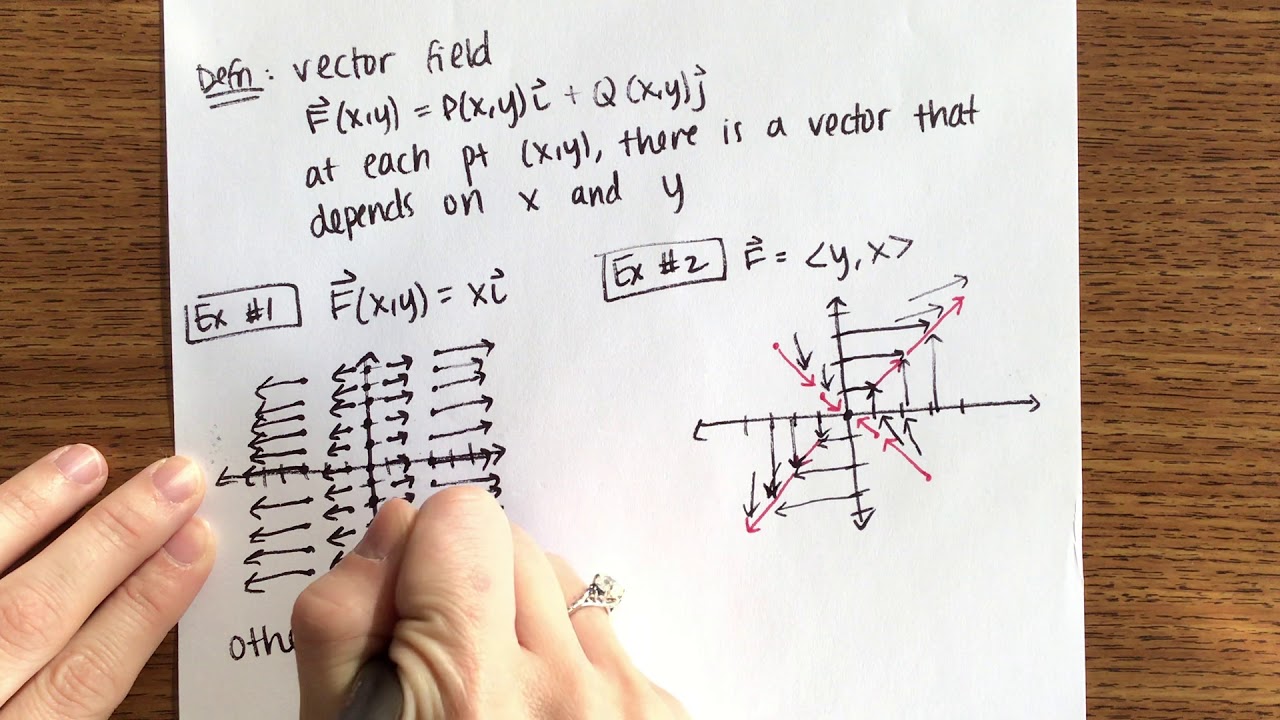 Defn: vector field
F⃗(x,y) = P(x,y)i⃗ + Q(x,y)j⃗
at each pt (x,y), there is a vector that
depends on x and y
Ex #1 F⃗(x,y) = xi⃗
Ex #2 F⃗ = <y, x>
othe